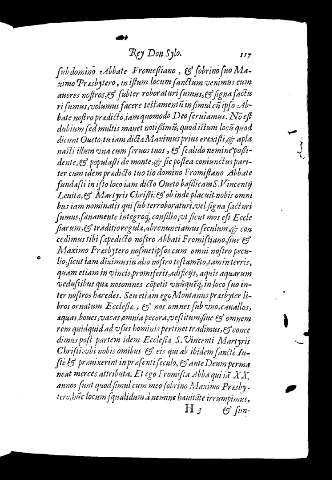 Rey Don Sylo. 117
sub domino Abbate Fromestiano, & sobrino suo Ma-
ximo Presbytero, in istum locum sanctum venimus cum
nostros, & subter roboraturi sumus, & signa factu
ri sumus, volumus facere testamentū in simul cū ipso Ab-
bate nostro prædicto, iam quomodo Deo seruiamus. Nō est
dubium sed multis manet notissimū, quod istum locū quod
dicunt Oueto, tu iam dicte Maximus prius erexisti & apla
nasti illum vna cum seruos tuos, & scalido nemine possi-
dente, & populasti de monte, & sic postea coniunctus pari-
ter cum idem prædicto tuo tio domino Fromistano Abbate
fundasti in isto loco iam dicto Oueto basilicam S. Vincentij
Leuitæ, & Martyris Christi, & ob inde placuit nobis omni
bus iam nominatis qui sub terroboraturi, vel signa facturi
sumus, sanamente integroq; consilio, vt sicut mos est Eccle
siarum, & traditio regula, abrenunciamus seculum, & con
cedimus tibi sæpedicto nostro Abbati Fromistiano, siue &
Maximo Presbytero nosmetipsos cum omni nostro pecu-
lio, sicut iam diximus in alio nostro testamēto, tam in terris,
quam etiam in vineis promiferis, ædificijs, aquis aquarum
quas nos omnes cōpetit vnūquēq; in loco suo in-
ter nostros hæredes. Seu etiam ego Montanus presbyter li-
bros ornatum Ecclesiæ, & nos omnes sub vno, cauallos,
equas, boues, vacas, omnia pecora, vestitum, siue & omnem
rem quidquid ad vsus hominis pertinet tradimus, & conce
dimus post partem idem Ecclesia S. Vincenti Martyris
Christi: vbi nobis omibus & eis qui ab ibidem sancti Iu-
sti & proximerint in præsenti seculo, & ante Deum perma
neat merces attributa. Et ego Fromista Abba qui iā XX.
annos sunt quod simul cum meo sobrino Maximo Presby-
tero, hūc locum squalidum à nemine habitāte irrumpimus,
H 3 & fun-